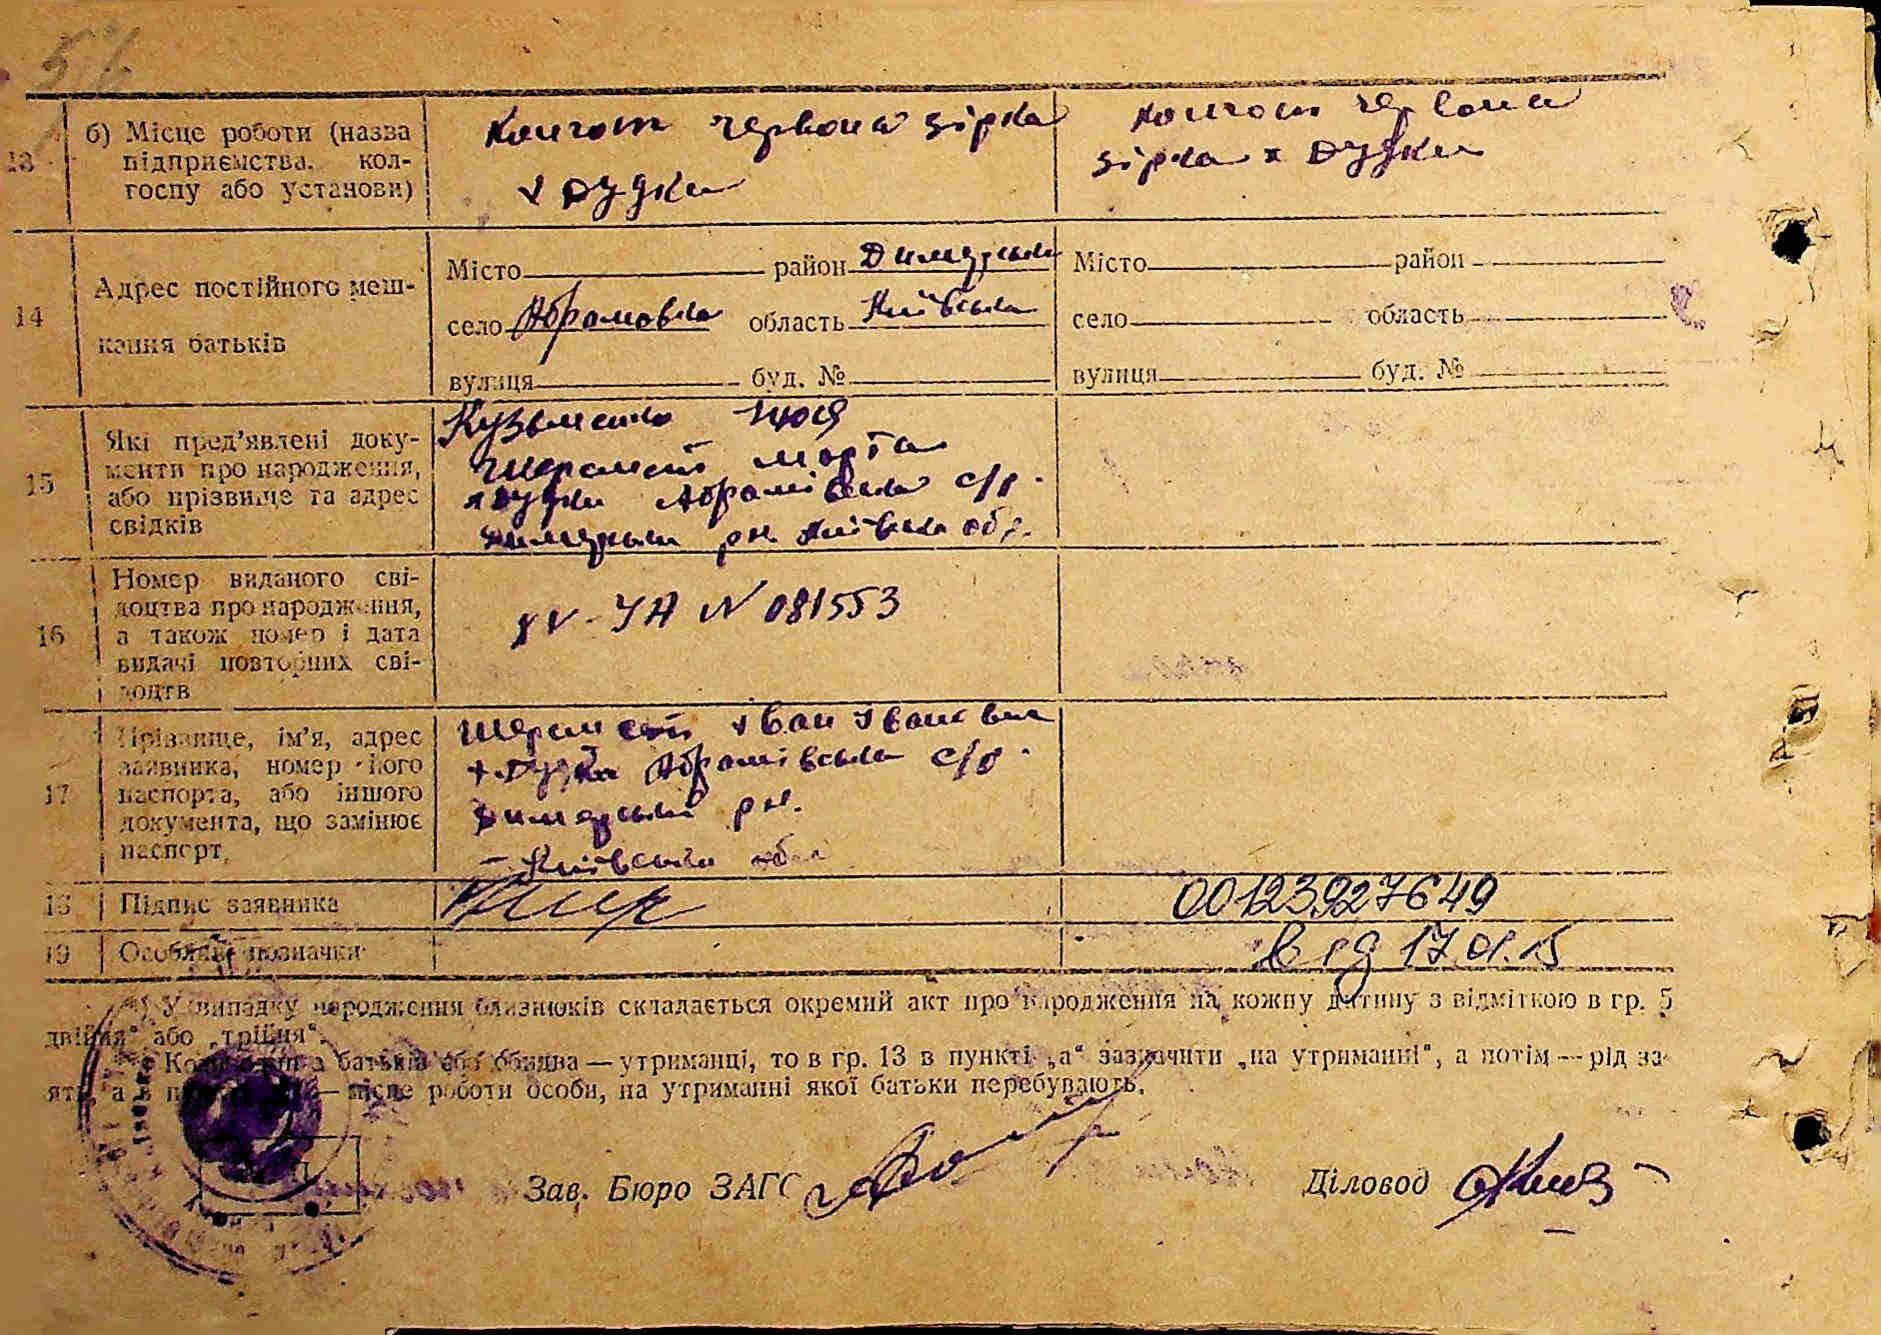 5
13
б) Місце роботи (назва
підприємства. кол-
госпу або установи)
Колгосп червона зірка
х Дудки
колгосп червона
зірка х Дудки
14
Адрес постійного меш-
кання батьків
Місто район Димерськи
село Абрамовка область Київська
вулиця буд. №
Місто район
село область
вулиця буд. №
15
Які пред'явлені доку-
менти про народження,
або прізвище та адрес
свідків
Кузьменко
Шеремет Марта
х Дудки Абрамівська с/р.
Димерськи рн Київська обл.
16
Номер виданого сві-
доцтва про народження,
а також номер і дата
видачі повторних сві-
доцтв
УА N 081553
17
Прізвище, ім'я, адрес
заявника, номер його
паспорта, або іншого
документа, що замінює
паспорт.
Шеремет Іван Іванович
х Дудки Абрамівська с/р.
Димерськи рн.
Київська обл
18
Підпис заявника
00123927649
19
Особливі позначки
від 17.01.15
*) У випадку народження близнюків складається окремий акт про народження на кожну дитину з відміткою в гр. 5
двійня" або „трійня".
Коли один з батьків або обидва — утриманці, то в гр. 13 в пункті „а" зазначити „на утриманні", а потім — рід за-
місце роботи особи, на утриманні якої батьки перебувають.
Зав. Бюро ЗАГС
Діловод